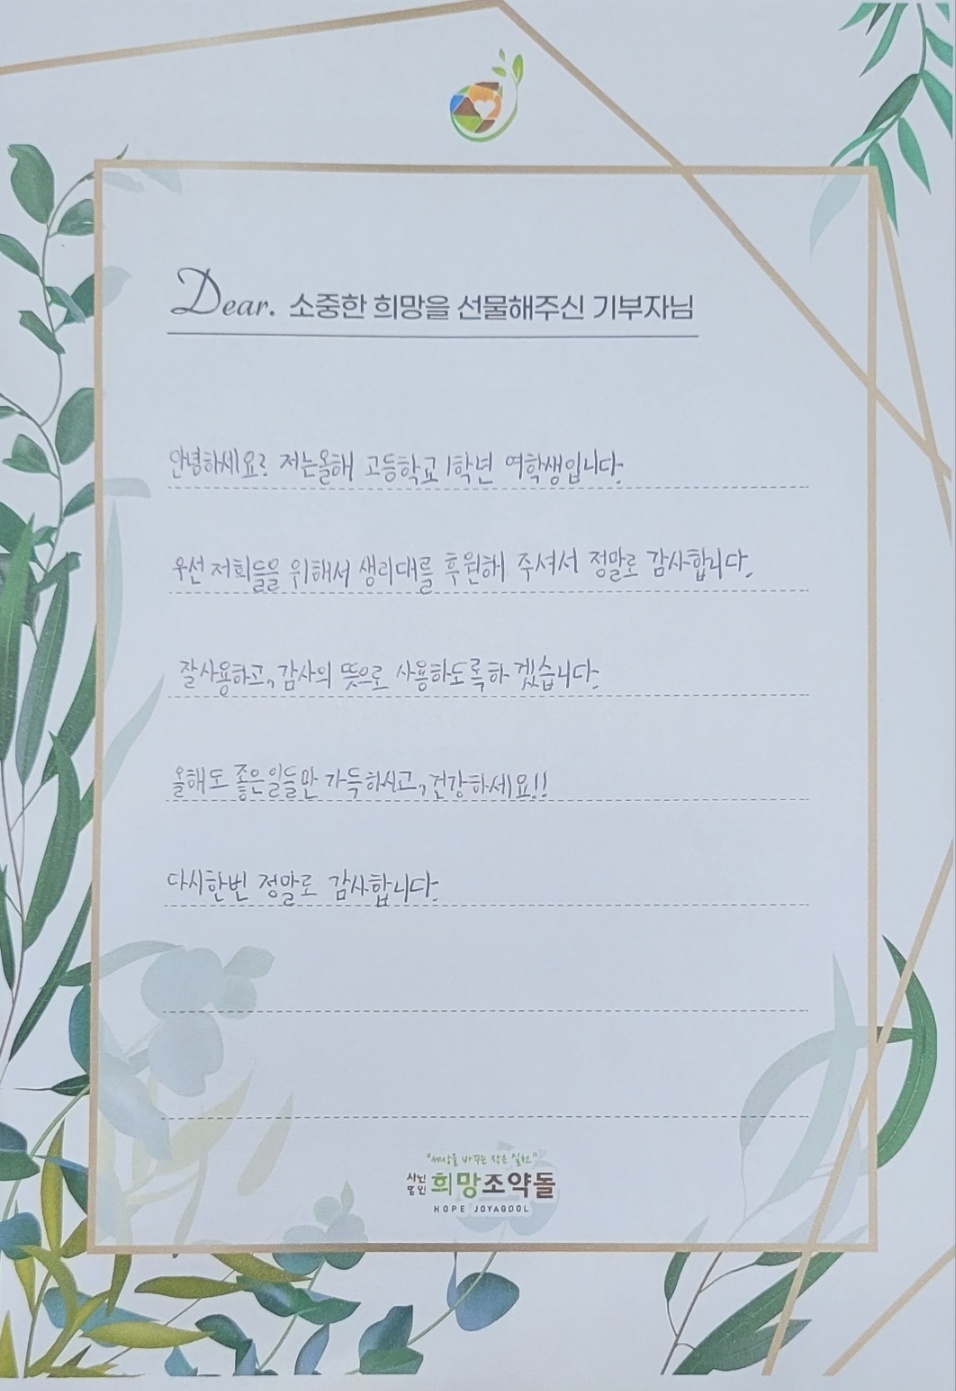 Dear. 소중한 희망을 선물해주신 기부자님
안녕하세요? 저는올해 고등학교 1학년 여학생입니다.
우선 저희들을 위해서 생리대를 후원해 주셔서 정말로 감사합니다.
잘사용하고, 감사의 뜻으로 사용하도록하겠습니다.
올해도 좋은일들만 가득하시고, 건강하세요!!
다시한번 정말로 감사합니다.
"세상을 바꾸는 작은 실천"
사단법인 희망조약돌
HOPE JOYAGDOL